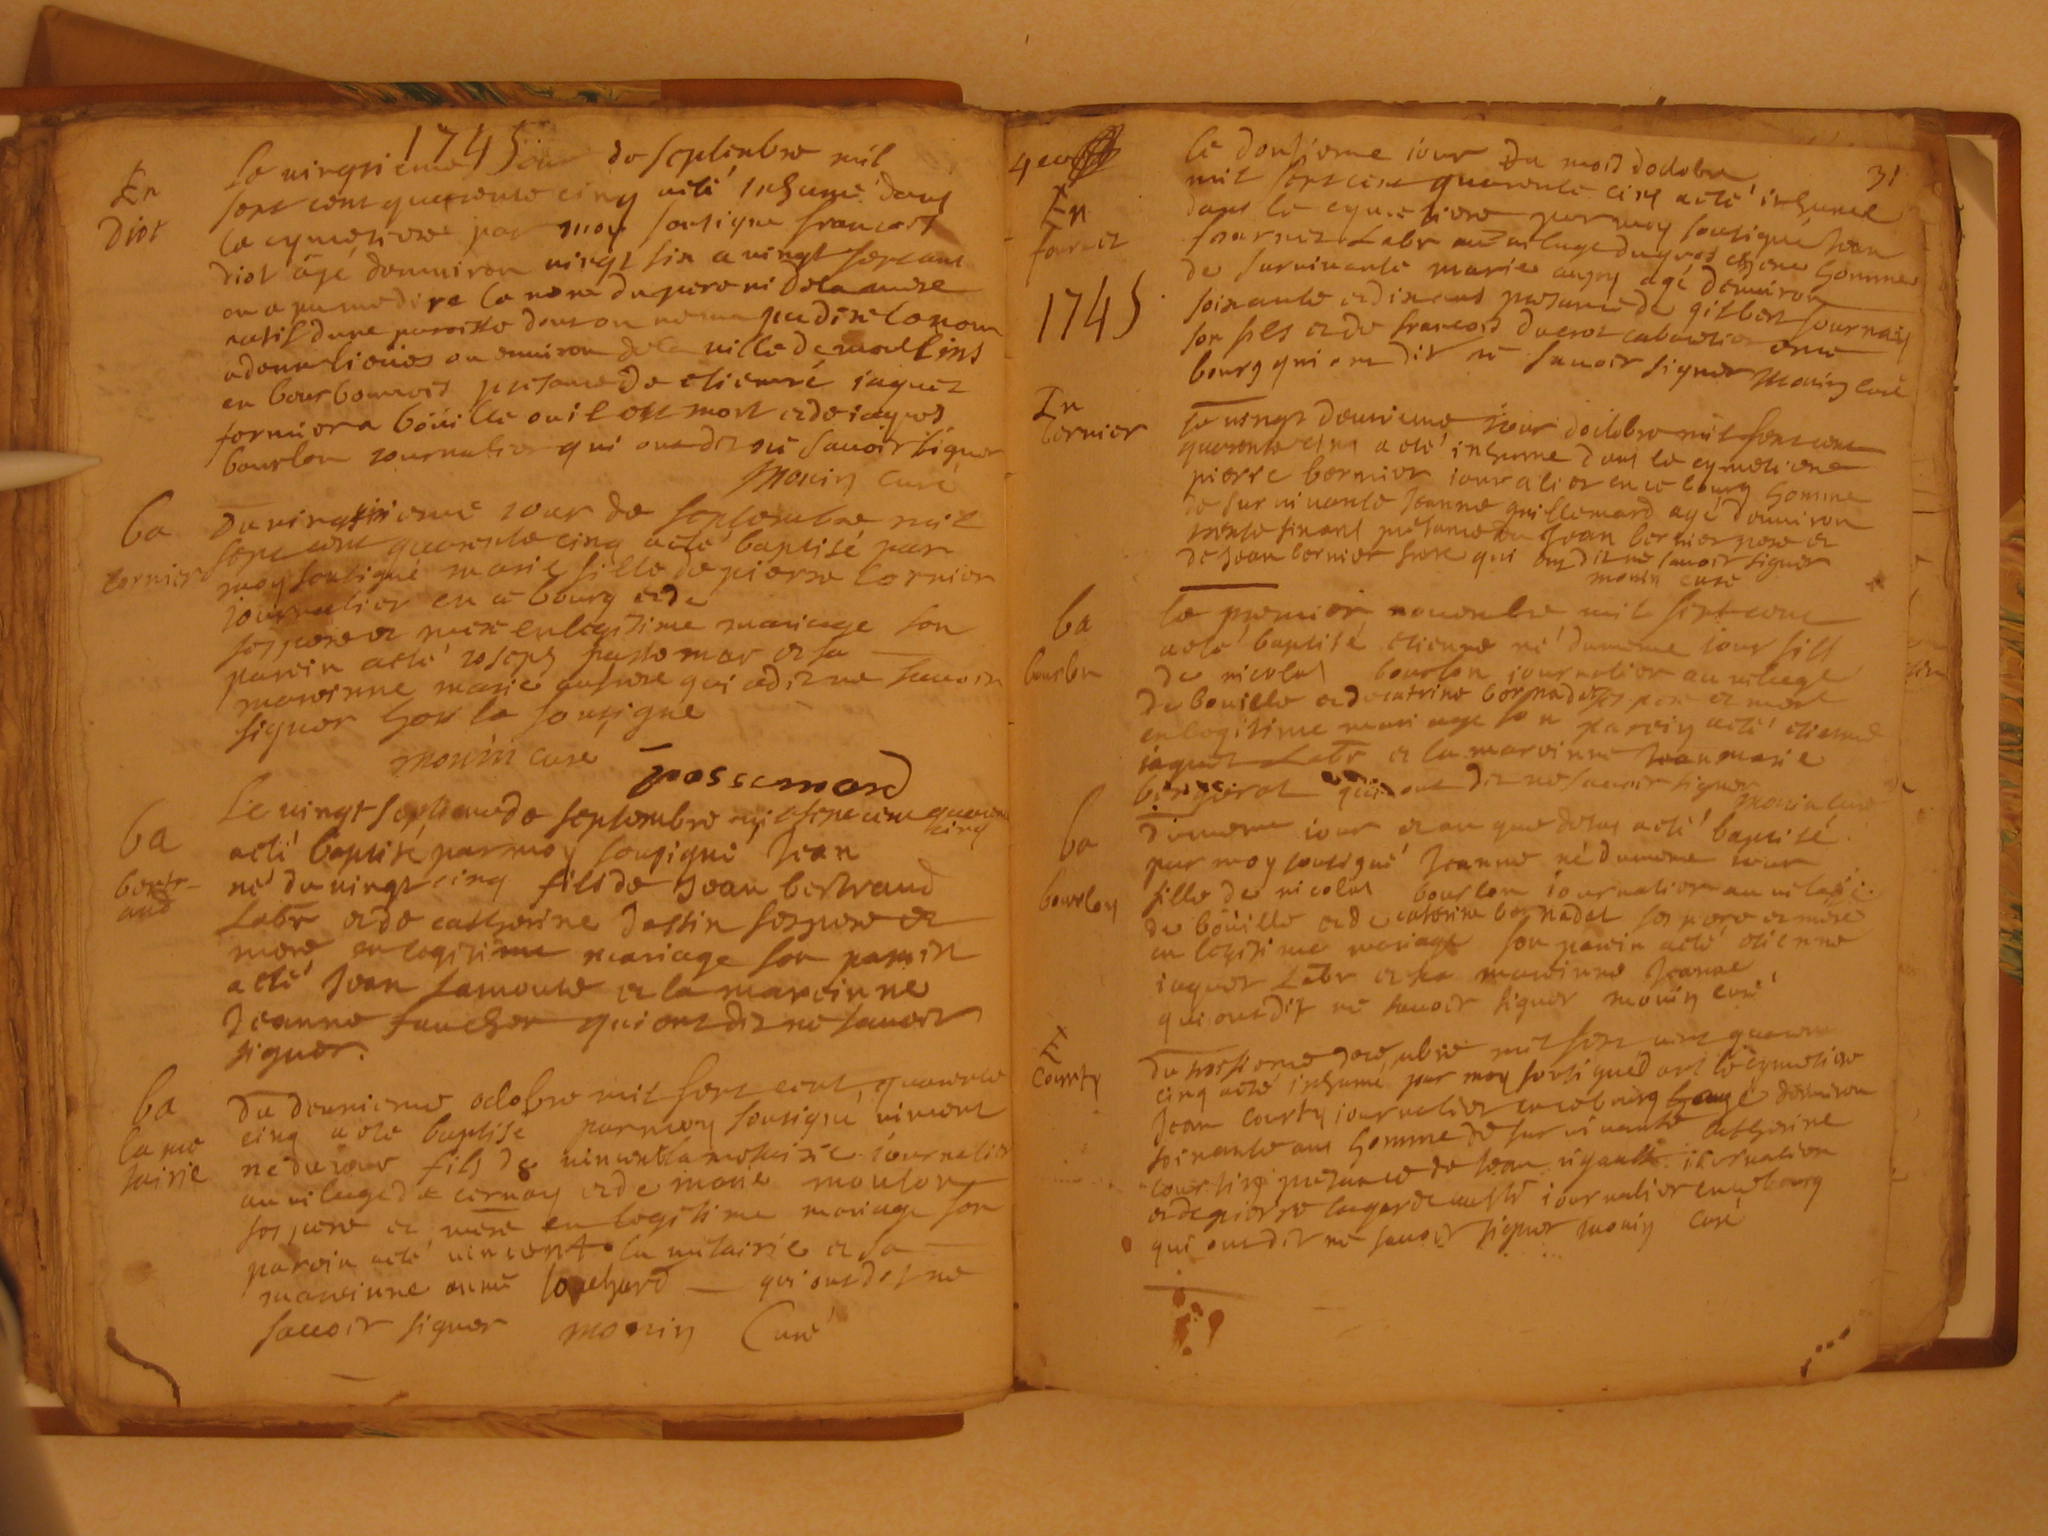 1745
En
Diot
Le vingtieme jour de septembre mil
sept cent quarente cinq a eté inhumé dans
le cymetiere par moy sousigne francois
diot agé denuiron vingt six a vingt sept ans
on a pu me dire le nom du pere ni de la mere
natif dune paroisse dont on ne ma pu dire le nom
a deux lieües ou enuiron de la ville de moullins
en bourbonnois presence de etienne iaquet
fermier a boüille ou il est mort et de iaques
bourbon iournalier qui ont dit ne sauoir signer
monin curé
ba
bernier
Du vingtsixieme iour de septembre mil
sept cent quarente cinq a eté baptisé par
moy sousigné marie fille de pierre bernier
iournalier en ce bourg et de
ses pere et mere en legitime mariage son
parein a eté ioseph passemar et sa
mareinne marie qui a dit ne sauoir
signer hors le sousigné
monin curé
passemard
ba
bertr-
and
Le vingt septieme de septembre mil sept cent quarente
cinq
a eté baptisé par moy sousigné Jean
né du vingt cinq fils de Jean bertrand
Labr et de catherine dessin ses pere et
mere en legitime mariage son parein
a eté Jean lamoure et la mareinne
Jeanne faucher qui ont dit ne sauoir
signer.
ba
la me
tairie
Du deuxieme octobre mil sept cent quarente
cinq a eté baptisé par moy sousigné vincent
né du iour fils de vincent la metairie iournalier
au village de cernay et de marie mouton
ses pere et mere en legitime mariage son
parein a eté vincent la metairie et sa
mareinne anne louchard qui ont dit ne
sauoir signer monin Curé
31
En
fournet
1745
le douzieme iour du mois d'octobre
mil sept cent quarente cinq a eté inhumé
dans le cymetiere par moy sousigné Jean
fournet Labr au village du gros chene homme
de suruiuante marie augy agé denuiron
soixante et dix ans presence de gilbert fournay
son fils et de francois ducrot cabaretier en ce
bourg qui ont dit ne sauoir signer monin curé
En
bernier
Le vingt deuxieme iour d'octobre mil sept cent
quarente cinq a eté inhumé dans le cymetiere
pierre bernier iournalier en ce bourg homme
de suruiuante Jeanne guillemard agé denuiron
trente six ans presence de Jean bernier pere et
de Jean bernier frere qui ont dit ne sauoir signer
monin curé
ba
bourbon
le premier nouembre mil sept cent
a eté baptisé etienne né du meme iour fils
de nicolas bourbon iournalier au village
de bouille et de catrine bernadet ses pere et mere
en legitime mariage son parein a eté etienne
iaquet Labr et la mareinne Jeanmarie
bergerat qui ont dit ne sauoir signer
monin curé
ba
bourbon
Du meme iour et an que desus a eté baptisé
par moy sousigné Jeanne né du meme iour
fille de nicolas bourbon iournalier au village
de boüille et de caterine bernadet ses pere et mere
en legitime mariage son parein a eté etienne
iaquet Labr et sa mareinne Jeanne
qui ont dit ne sauoir signer monin curé
E
Courty
Du mil sept cent quarente
cinq a eté inhumé par moy sousigné dans le cymetiere
Jean courty iournalier en ce bourg agé denuiron
soixante ans homme de suruiuante catherine
presence de Jean iournalier
et de pierre iournalier en ce bourg
qui ont dit ne sauoir signer monin curé